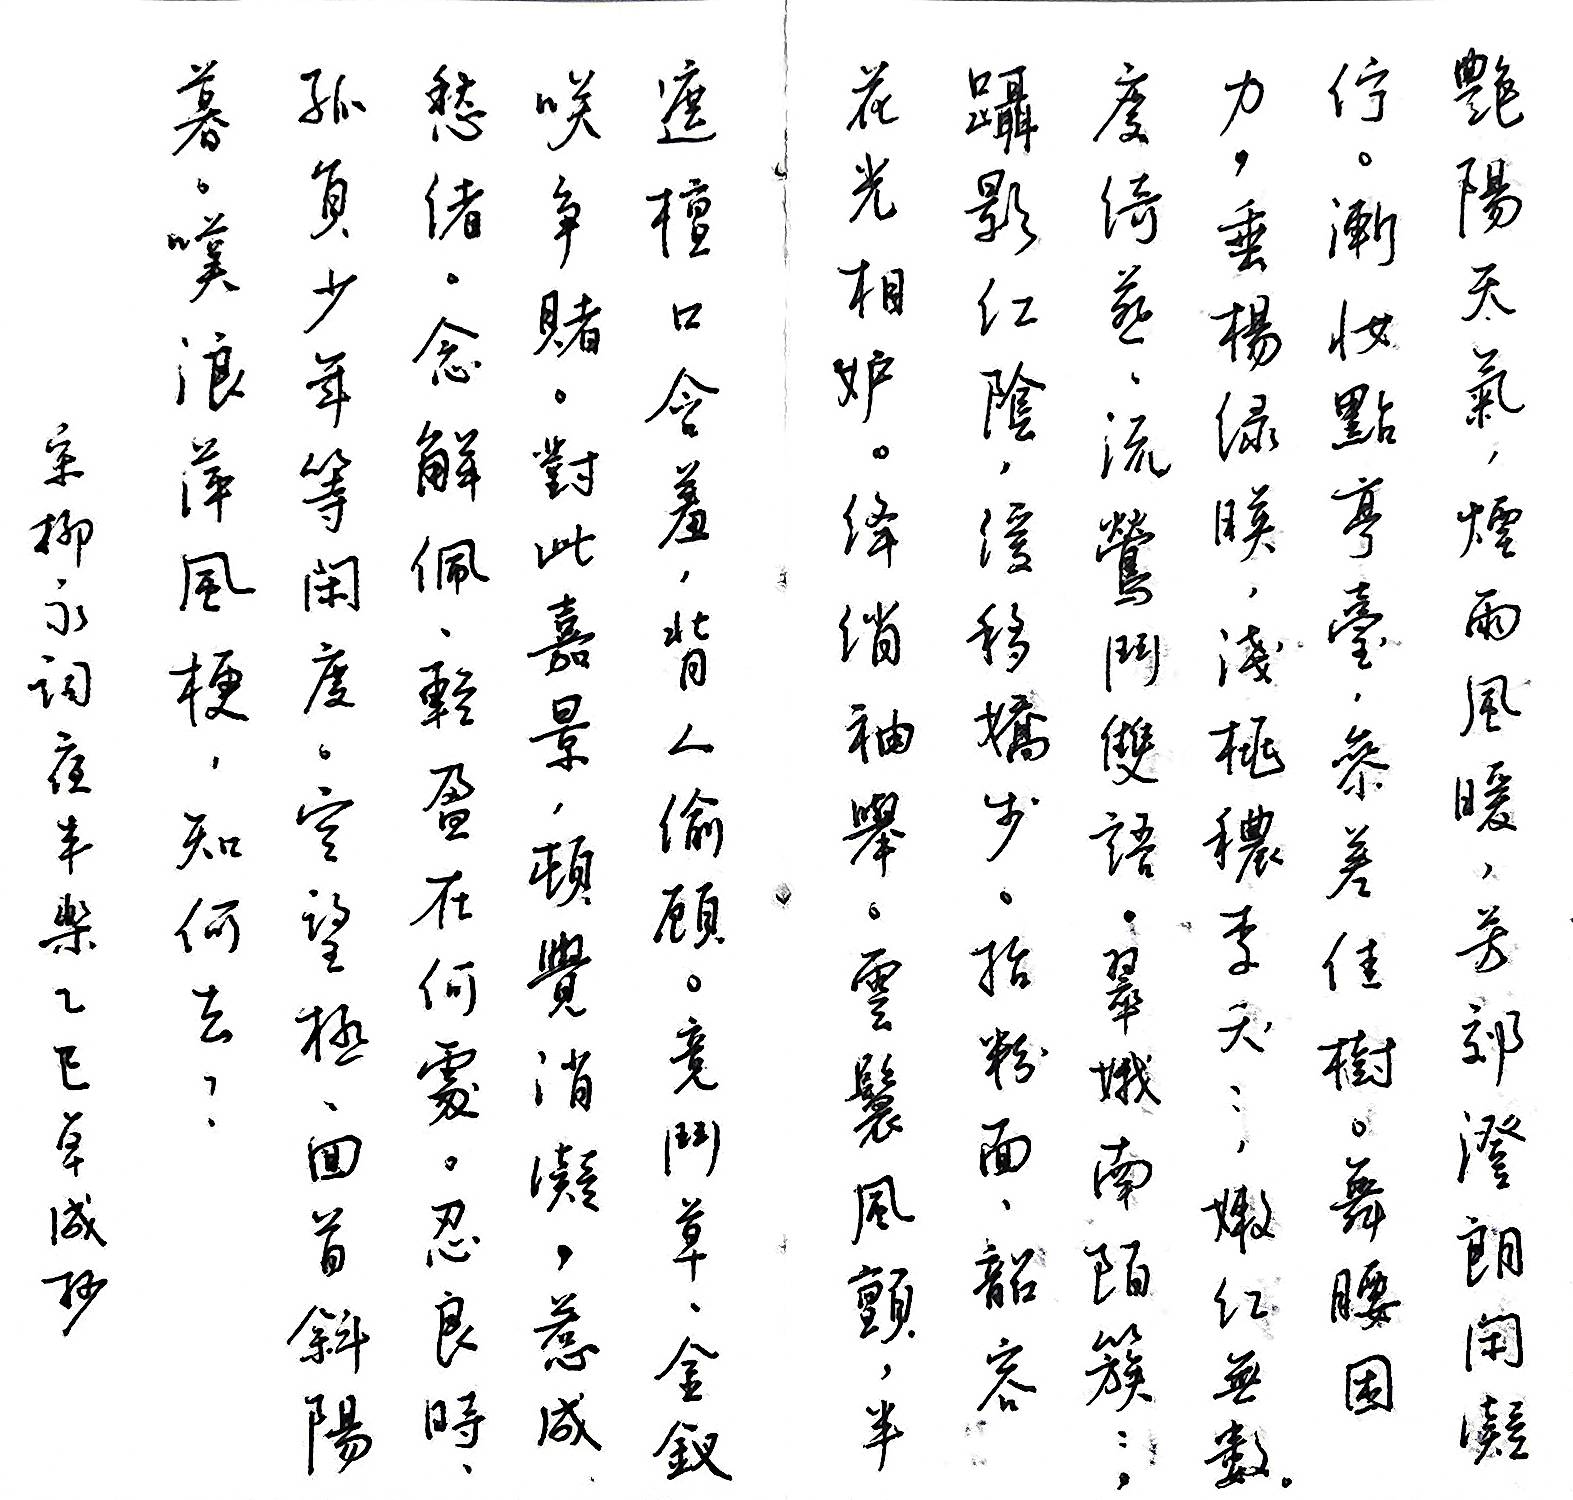 艷陽天氣，煙雨風暖，芳郊澄朗閑凝
佇。漸妝點亭臺，參差佳樹。舞腰困
力，垂楊绿映，淺桃穠李夭〻，嫩红無數。
度绮燕、流鶯鬥雙語。翠娥南陌簇〻，
躡影红陰，緩移嬌步。抬粉面、韶容
花光相妒。绛绡袖舉。雲鬟風顫，半
遮檀口含羞，背人偷顧。竞鬥草、金釵
咲争賭。對此嘉景，頓覺消凝，惹成
愁緒。念解佩、輕盈在何處。忍良時、
孤負少年等閑度。空望極、囬首斜陽
暮。嘆浪萍風梗，知何去？
宋柳永詞夜半樂乙巳草成抄